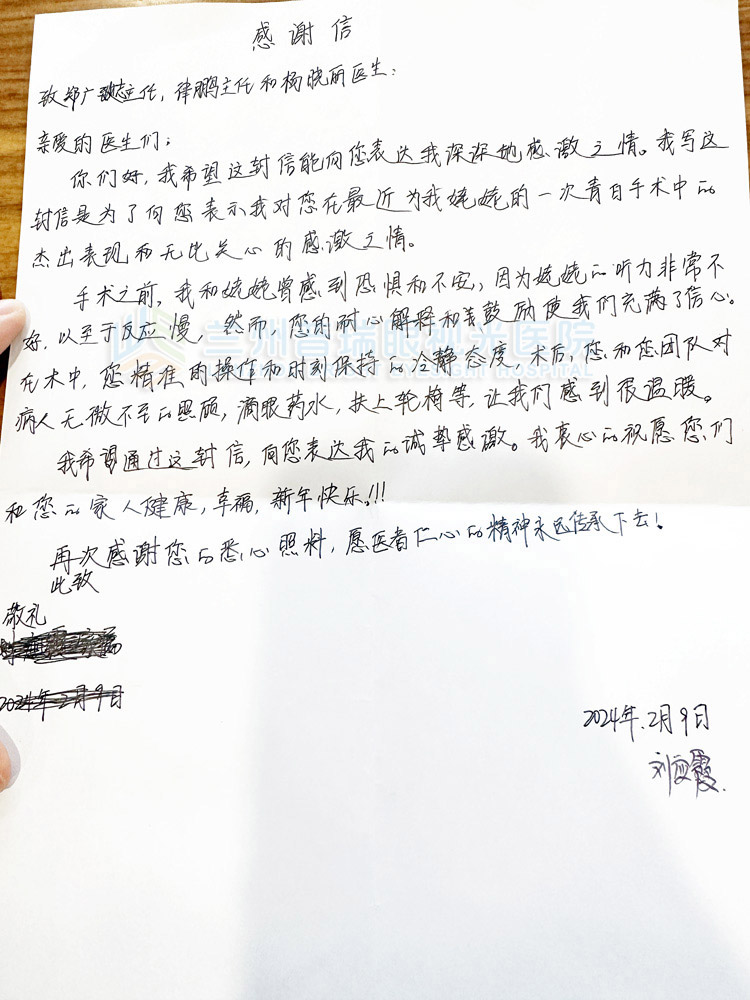 感谢信
致郑广瑛主任，律鹏主任和杨晓丽医生：
亲爱的医生们：
你们好，我希望这封信能向您表达我深深地感激之情。我写这
封信是为了向您表示我对您在最近为我姥姥的一次青白手术中的
杰出表现和无比关心的感激之情。
手术之前，我和姥姥曾感到恐惧和不安，因为姥姥的听力非常不
好，以至于反应慢，然而，您的耐心解释和鼓励使我们充满了信心。
在术中，您精准的操作和时刻保持的冷静态度，术后，您和您团队对
病人无微不至的照顾，滴眼药水，扶上轮椅等，让我们感到很温暖。
我希望通过这封信，向您表达我的诚挚感激。我衷心的祝愿您们
和您的家人健康，幸福，新年快乐!!!
再次感谢您的悉心照料，愿医者仁心的精神永远传承下去！
此致
敬礼
2024年2月9日
2024年.2月9日
刘应霞.
兰州普瑞眼视光医院